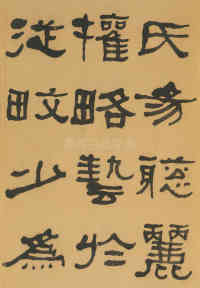 氏易聰麗
權略藝於
從畋少為